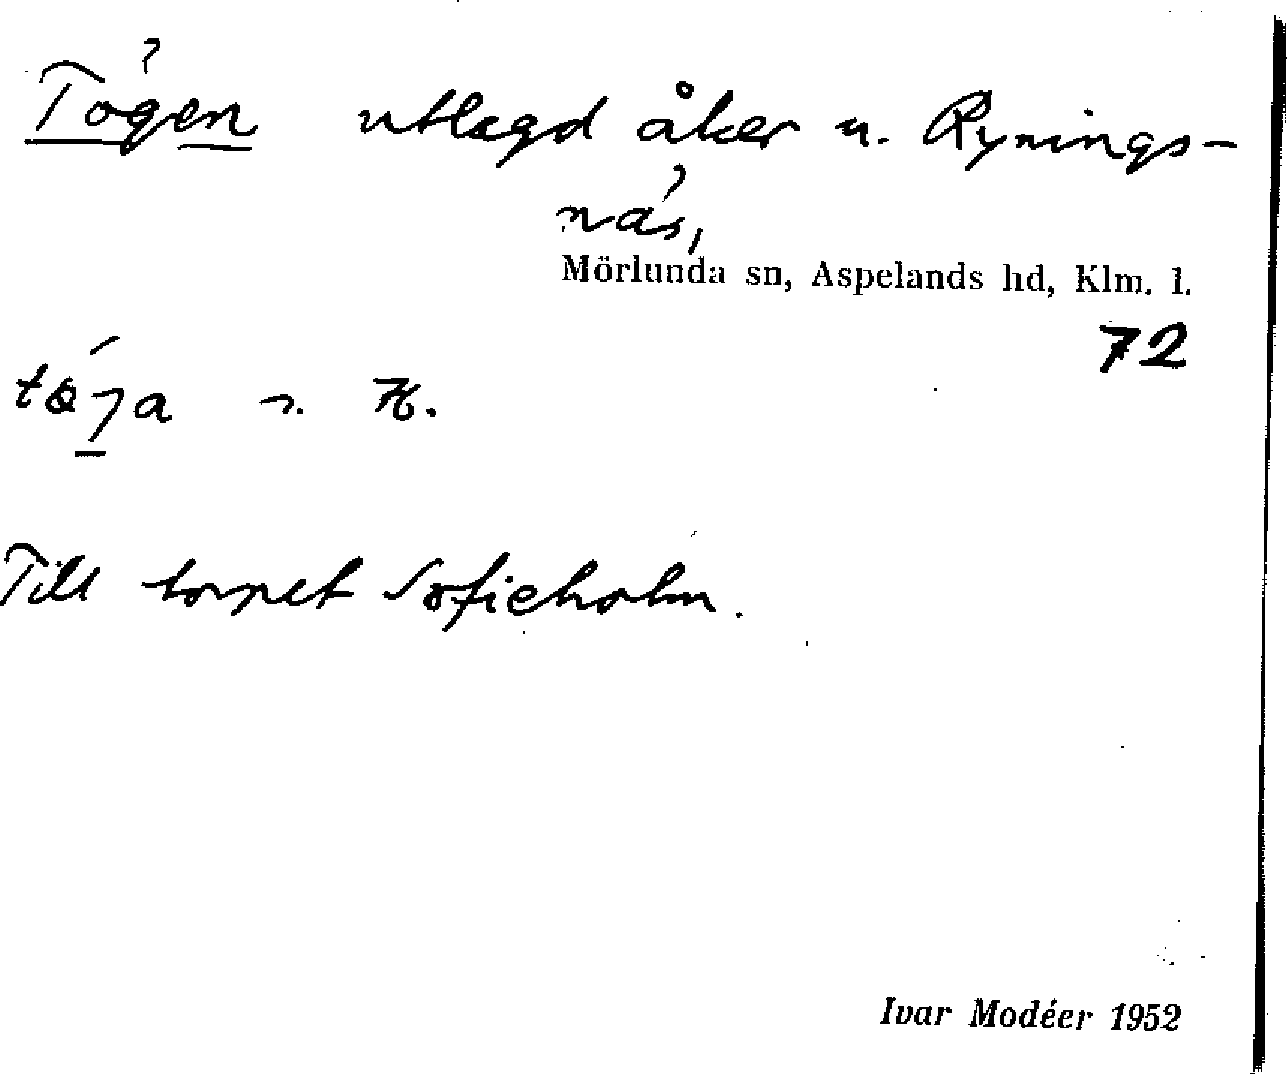 Tögen utlagd åker u. Rynings-
näs,
Mörlunda sn, Aspelands hd, Klm. l.
72
Till torpet Sofieholm.
Ivar Modéer 1952